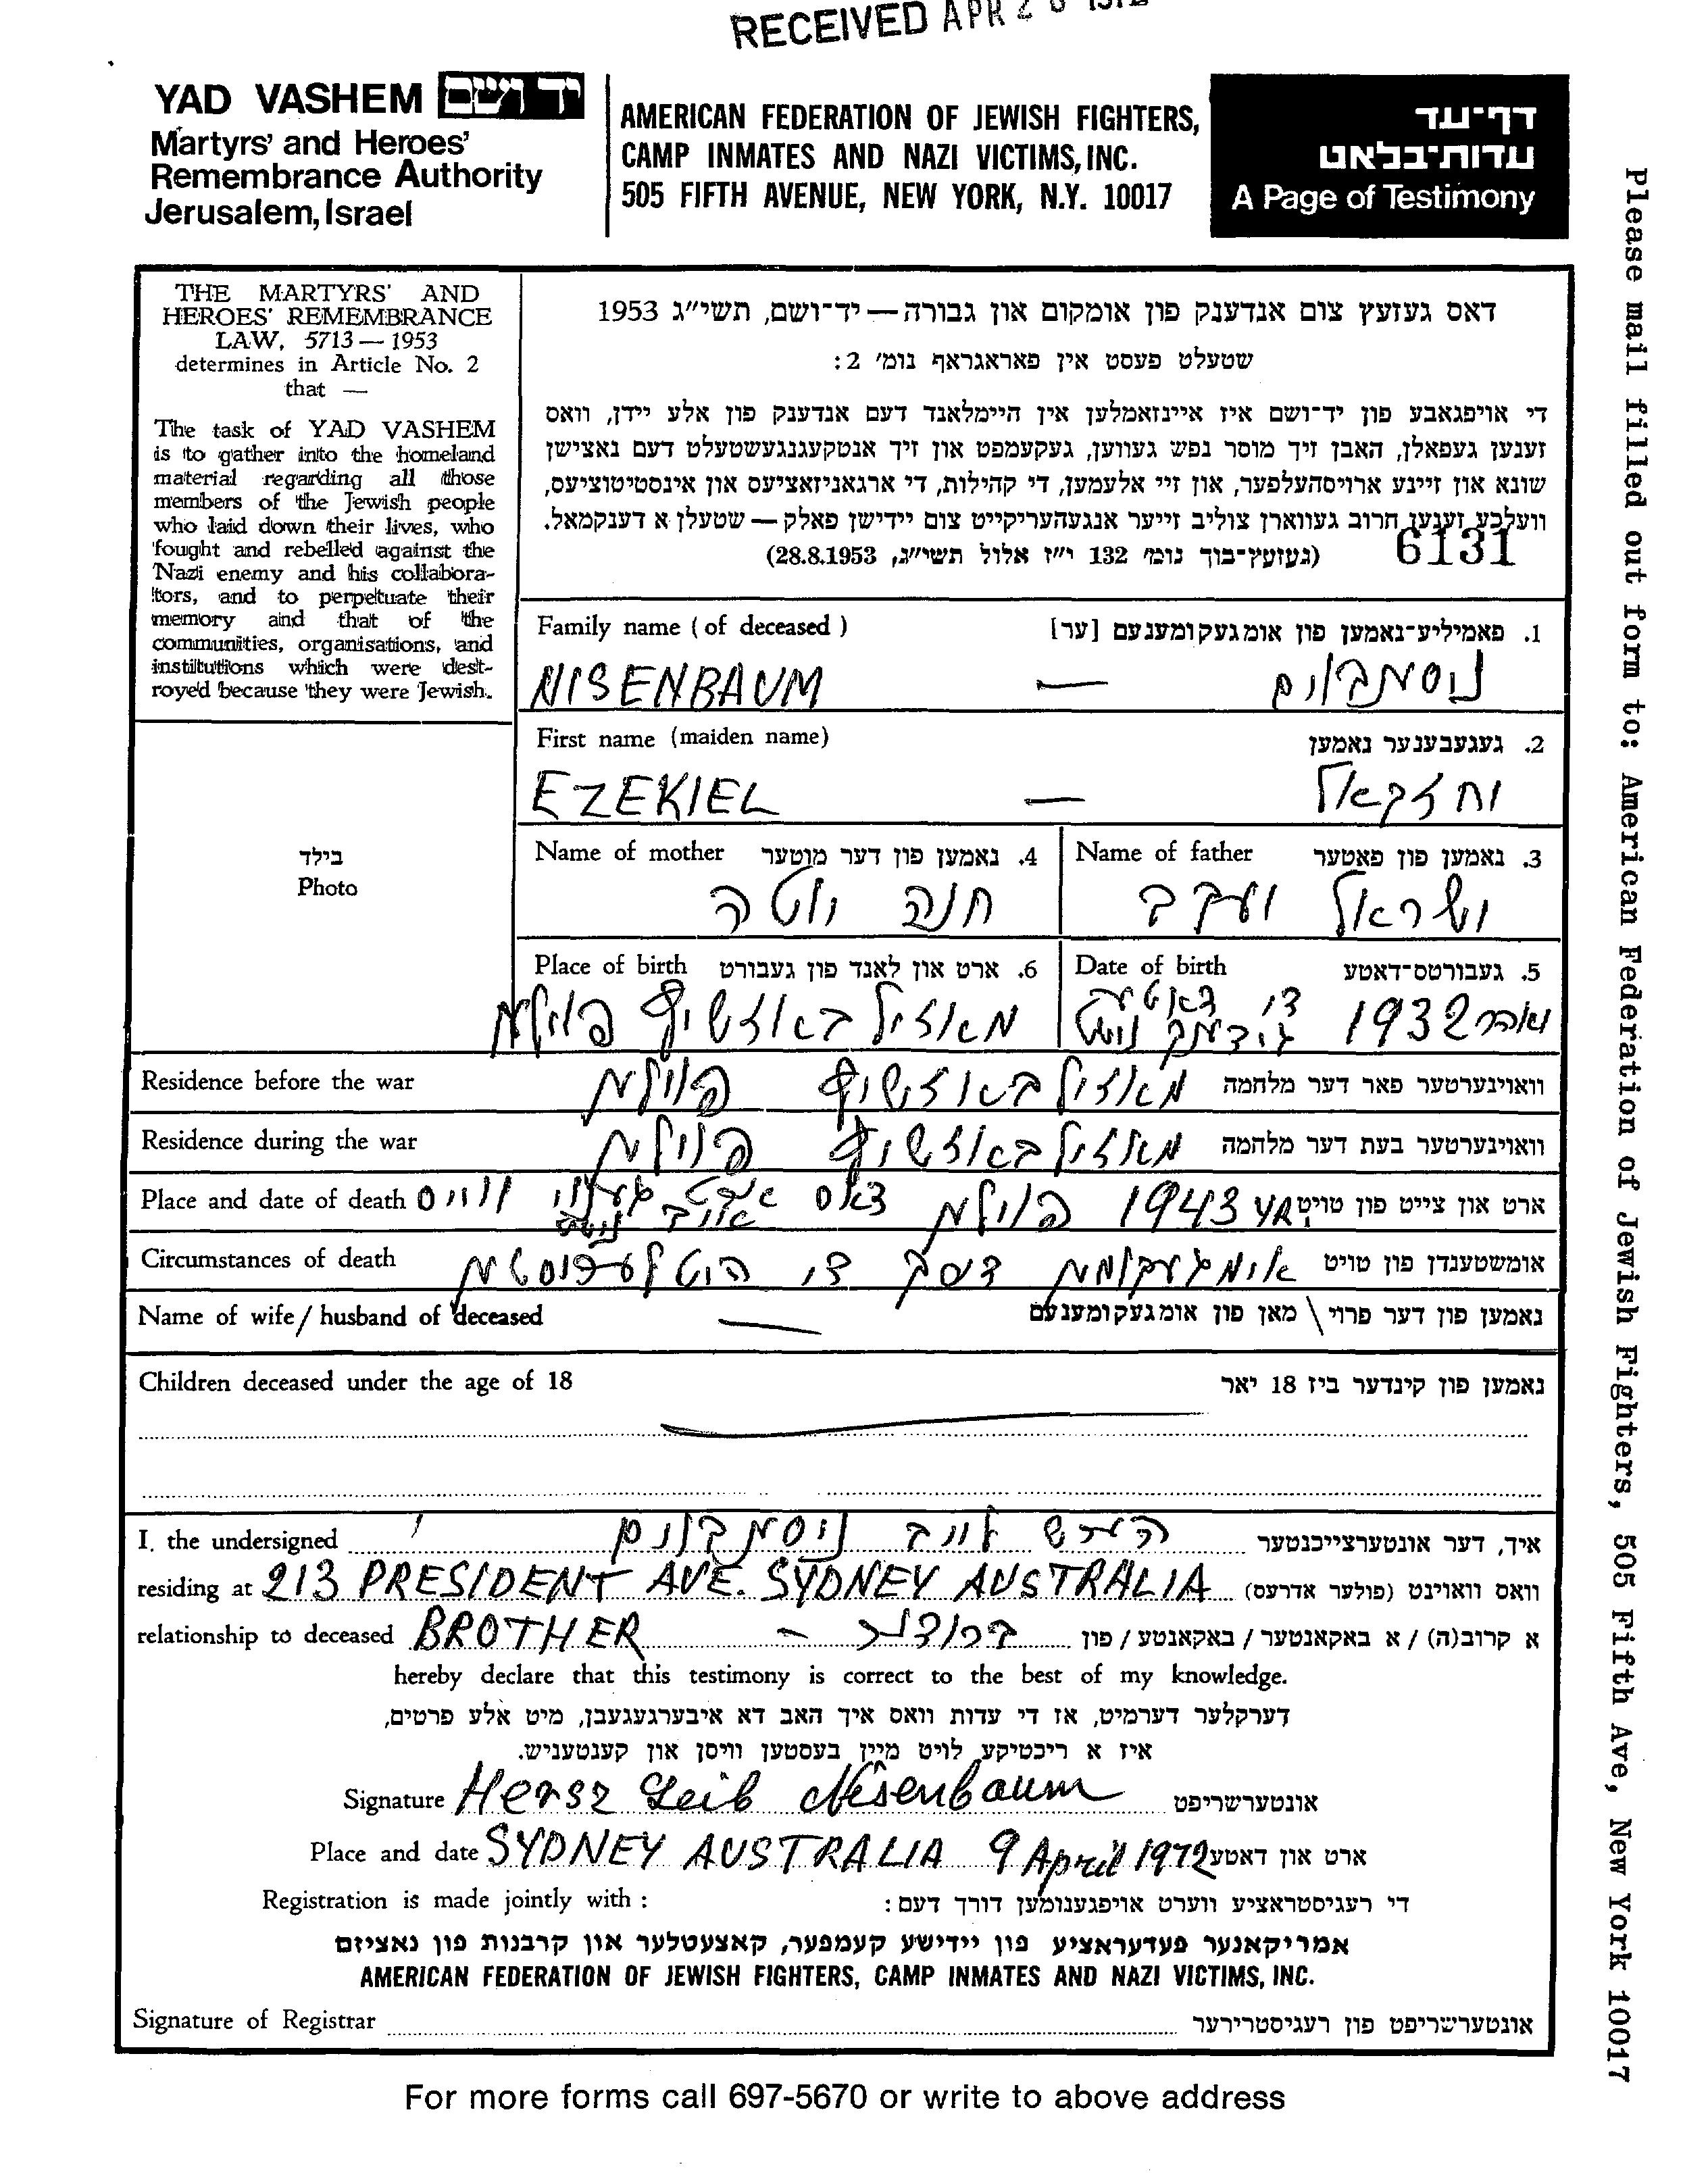 RECEIVED APR 2
YAD VASHEM יד ושם
Martyrs' and Heroes'
Remembrance Authority
Jerusalem, Israel
AMERICAN FEDERATION OF JEWISH FIGHTERS,
CAMP INMATES AND NAZI VICTIMS, INC.
505 FIFTH AVENUE, NEW YORK, N.Y. 10017
דף־עד
עדות־בלאט
A Page of Testimony
Please mail filled out form to: American Federation of Jewish Fighters, 505 Fifth Ave, New York 10017
THE MARTYRS' AND
HEROES' REMEMBRANCE
LAW, 5713 — 1953
determines in Article No. 2
that —
The task of YAD VASHEM
is to gather into the homeland
material regarding all those
members of the Jewish people
who laid down their lives, who
fought and rebelled against the
Nazi enemy and his collabora-
tors, and to perpetuate their
memory and that of the
communities, organisations, and
institutions which were dest-
royed because they were Jewish.
דאס געזעץ צום אנדענק פון אומקום און גבורה — יד־ושם, תשי״ג 1953
שטעלט פעסט אין פאראגראף נומ׳ 2:
די אויפגאבע פון יד־ושם איז איינזאמלען אין היימלאנד דעם אנדענק פון אלע יידן, וואס
זענען געפאלן, האבן זיך מוסר נפש געווען, געקעמפט און זיך אנטקעגנגעשטעלט דעם נאצישן
שונא און זיינע ארויסהעלפער, און זיי אלעמען, די קהילות, די ארגאניזאציעס און אינסטיטוציעס,
וועלכע זענען חרוב געווארן צוליב זייער אנגעהעריקייט צום יידישן פאלק — שטעלן א דענקמאל.
(געזעץ־בוך נומ׳ 132 י״ז אלול תשי״ג, 28.8.1953)
6131
Family name (of deceased) 1. פאמיליע־נאמען פון אומגעקומענעם [ער]
NISENBAUM — ניסמבוים
First name (maiden name) 2. געגעבענער נאמען
EZEKIEL — יחזקאל
בילד
Photo
Name of mother 4. נאמען פון דער מוטער
חנה יוטה
Name of father 3. נאמען פון פאטער
ישראל יעקב
Place of birth 6. ארט און לאנד פון געבורט
Date of birth 5. געבורטס־דאטע
יאהר 1932 די דאטע
Residence before the war וואוינערטער פאר דער מלחמה
Residence during the war וואוינערטער בעת דער מלחמה
Place and date of death ארט און צייט פון טויט
1943 פוילן דאס
Circumstances of death אומשטענדן פון טויט
אומגעקומען דורך די
Name of wife / husband of deceased נאמען פון דער פרוי \ מאן פון אומגעקומענעם
Children deceased under the age of 18 נאמען פון קינדער ביז 18 יאר
I, the undersigned הערש לייב ניסמבוים איך, דער אונטערצייכנטער
residing at 213 PRESIDENT AVE. SYDNEY AUSTRALIA וואס וואוינט (פולער אדרעס)
relationship to deceased BROTHER - ברודער א קרוב(ה) / א באקאנטער / באקאנטע / פון
hereby declare that this testimony is correct to the best of my knowledge.
דערקלער דערמיט, אז די עדות וואס איך האב דא איבערגעגעבן, מיט אלע פרטים,
איז א ריכטיקע לויט מיין בעסטען וויסן און קענטעניש.
Signature Hersz Leib Nisenbaum אונטערשריפט
Place and date SYDNEY AUSTRALIA 9 April 1972 ארט און דאטע
Registration is made jointly with : די רעגיסטראציע ווערט אויפגענומען דורך דעם :
אמריקאנער פעדעראציע פון יידישע קעמפער, קאצעטלער און קרבנות פון נאציזם
AMERICAN FEDERATION OF JEWISH FIGHTERS, CAMP INMATES AND NAZI VICTIMS, INC.
Signature of Registrar אונטערשריפט פון רעגיסטרירער
For more forms call 697-5670 or write to above address